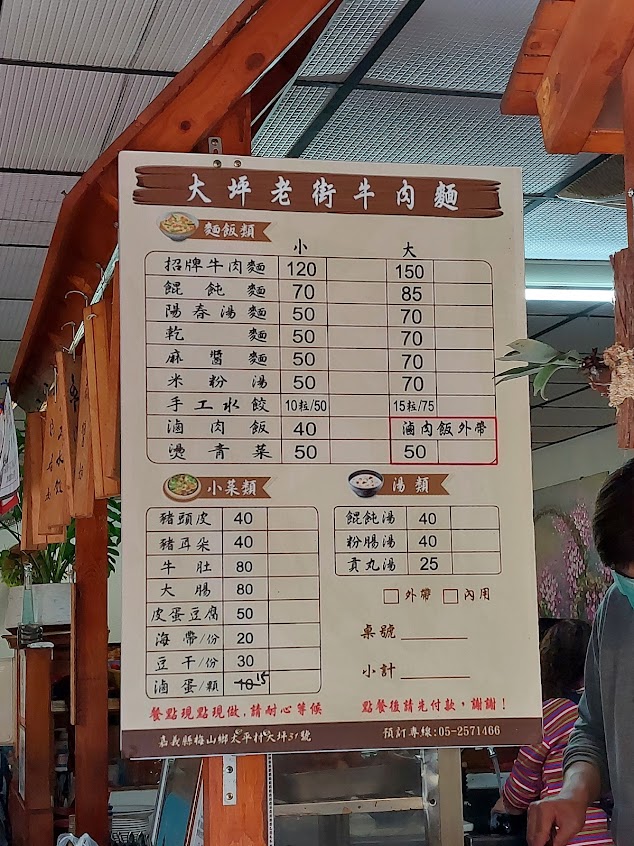 大坪老街牛肉麵
麵飯類
小 大
招牌牛肉麵 120 150
餛飩麵 70 85
陽春湯麵 50 70
乾麵 50 70
麻醬麵 50 70
米粉湯 50 70
手工水餃 10粒/50 15粒/75
滷肉飯 40 滷肉飯外帶
燙青菜 50 50
小菜類
豬頭皮 40
豬耳朵 40
牛肚 80
大腸 80
皮蛋豆腐 50
海帶/份 20
豆干/份 30
滷蛋/顆 10 15
湯類
餛飩湯 40
粉腸湯 40
貢丸湯 25
□外帶 □內用
桌號
小計
餐點現點現做,請耐心等候 點餐後請先付款,謝謝!
嘉義縣梅山鄉太平村大坪51號 預訂專線:05-2571466